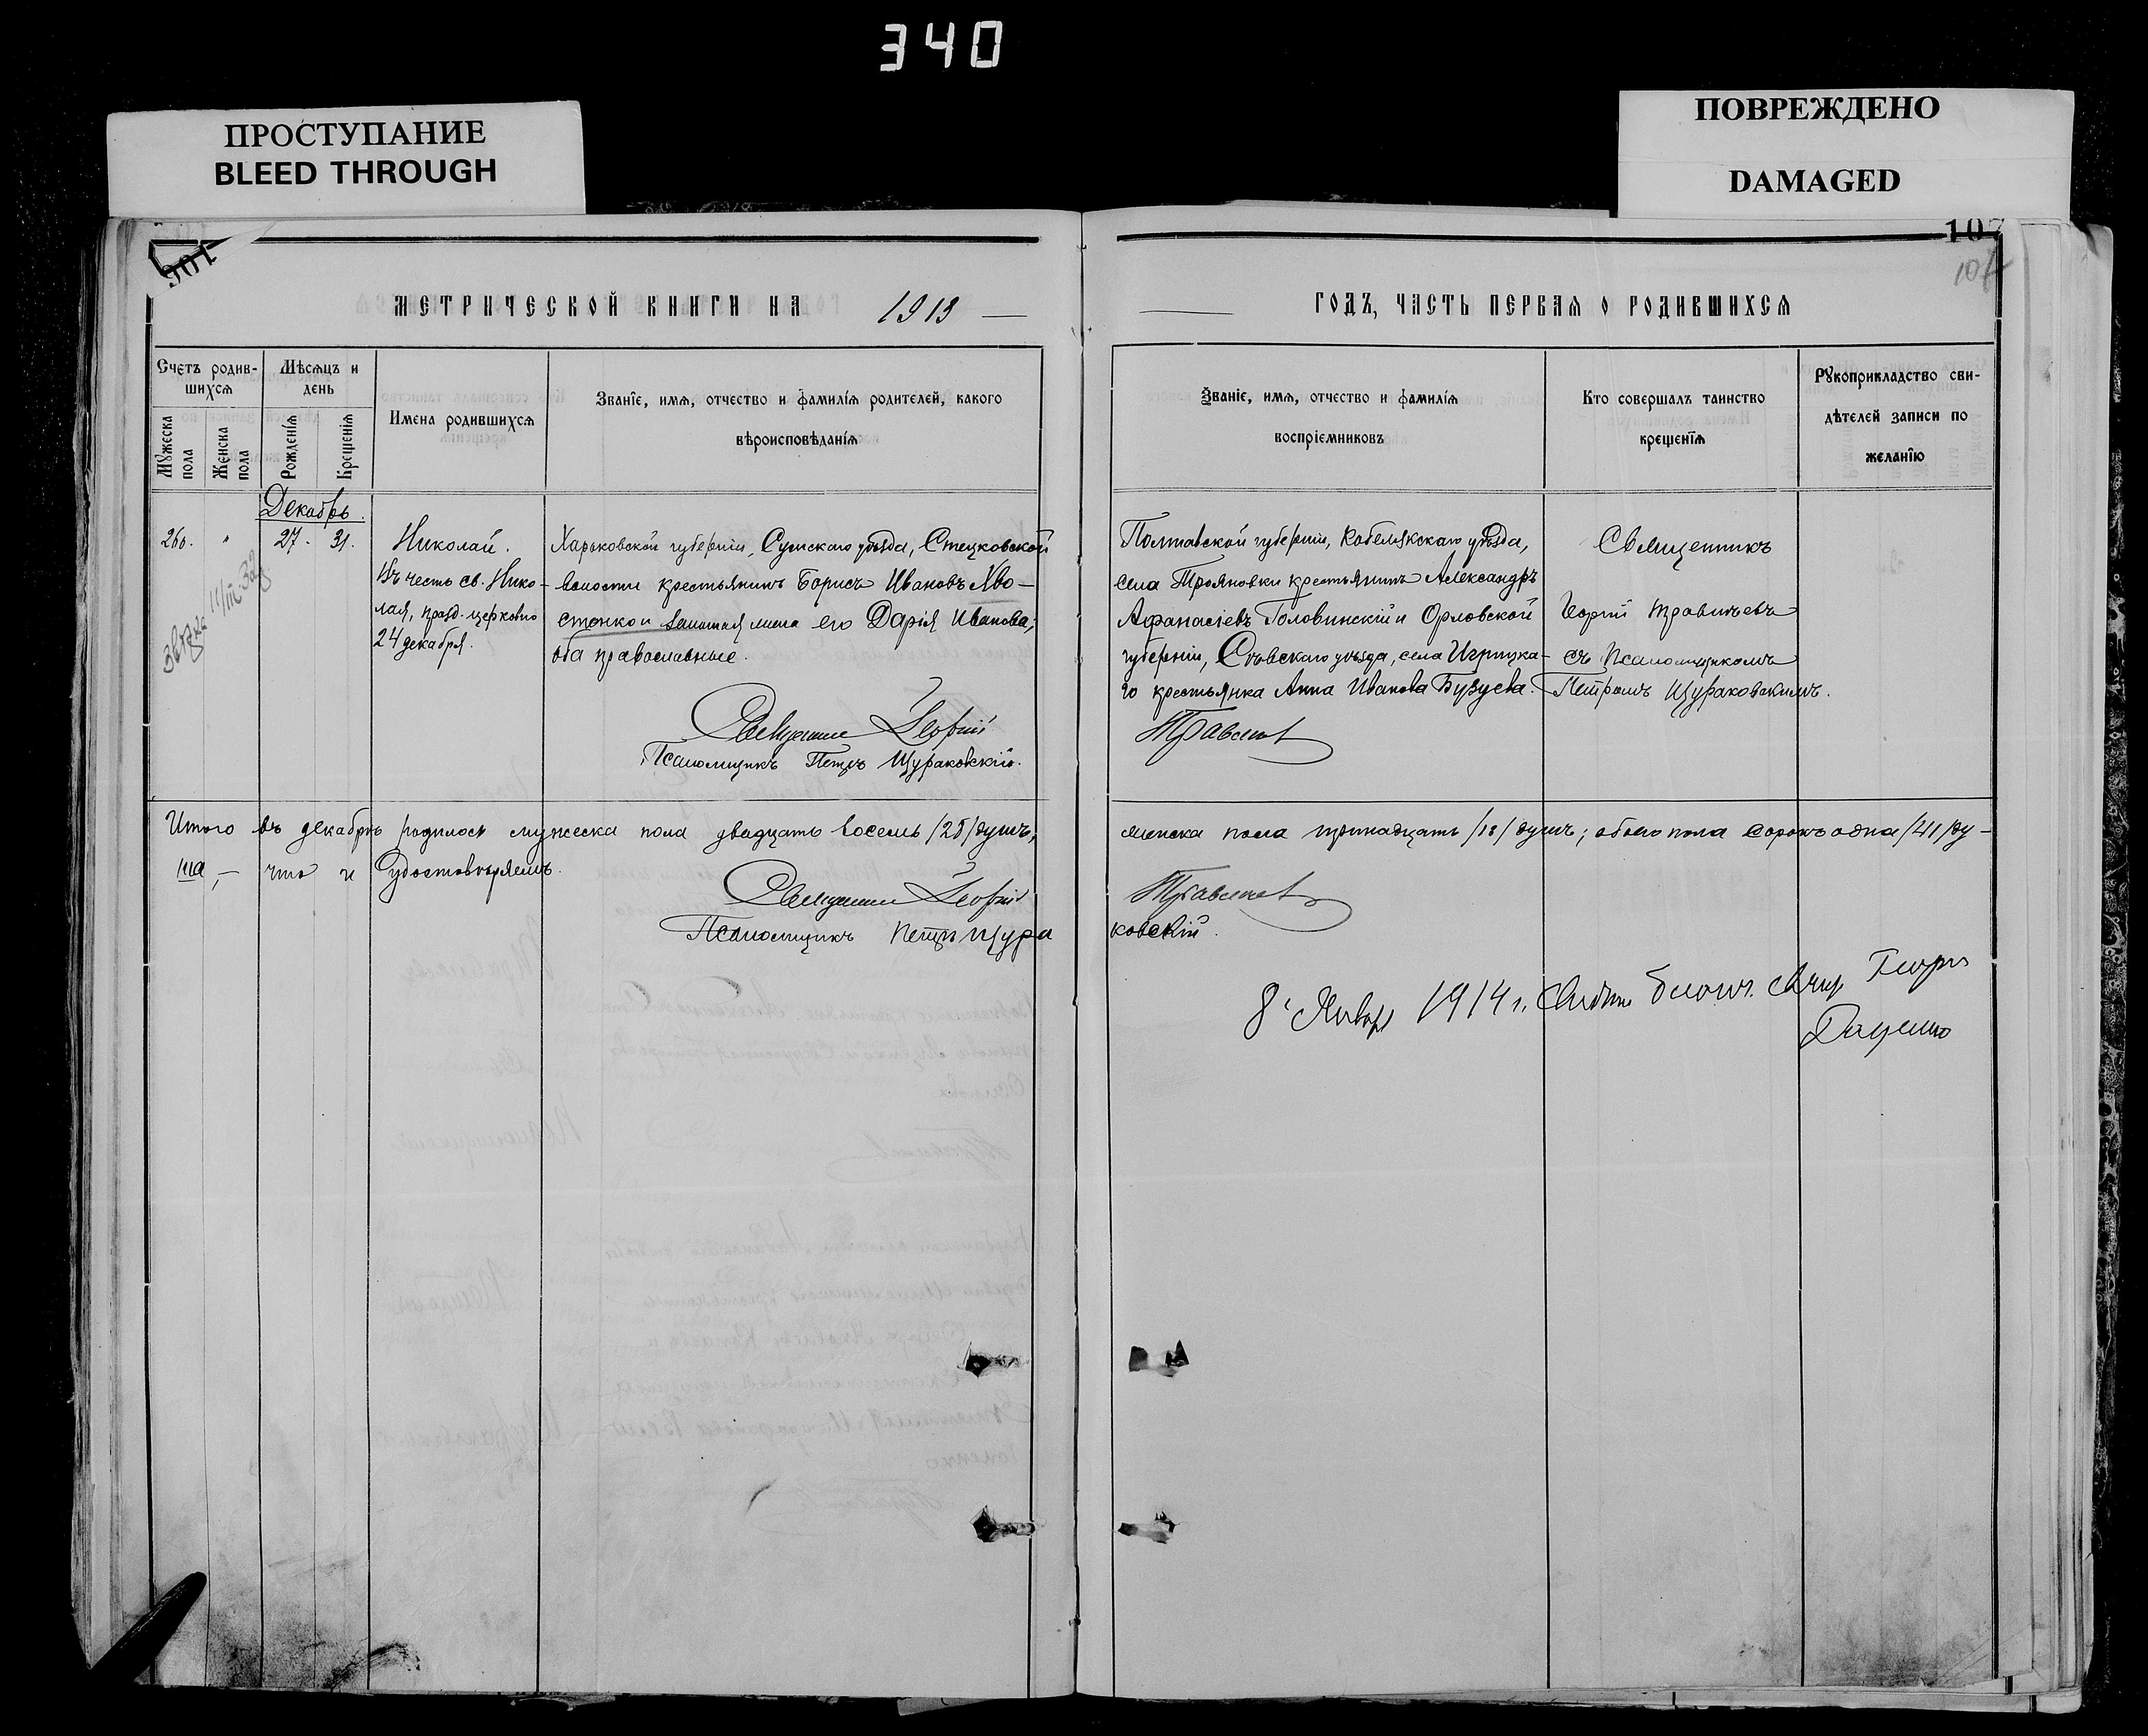 340
ПРОСТУПАНИЕ
BLEED THROUGH
ПОВРЕЖДЕНО
DAMAGED
107
МЕТРИЧЕСКОЙ КНИГИ НА 1913
ГОДЪ, ЧАСТЬ ПЕРВАЯ О РОДИВШИХСЯ
Счетъ родив-
шихся
Мужеска
пола
Женска
пола
Мѣсяцъ и
день
Рожденія
Крещенія
Имена родившихся
Званіе, имя, отчество и фамилія родителей, какого
вѣроисповѣданія
Званіе, имя, отчество и фамилія
воспріемниковъ
Кто совершалъ таинство
крещенія
Рукоприкладство сви-
дѣтелей записи по
желанію
Декабрь.
260. " 27. 31.
Николай.
Въ честь св. Нико-
лая, празд. церковію
24 декабря.
Харьковской губерніи, Сумскаго уѣзда, Стецковской
волости крестьянинъ Борисъ Ивановъ Хво-
стенко и законная жена его Дарія Иванова;
оба православные.
Священникъ Георгій
Псаломщикъ Петръ Щураковскій.
Полтавской губерніи, Кобелякскаго уѣзда,
села Трояновки крестьянинъ Александръ
Афанасіевъ Головинскій и Орловской
губерніи, Сѣвскаго уѣзда, села Игрицка-
го крестьянка Анна Иванова Бузуева.
Травинъ
Священникъ
Георгій
съ Псаломщикомъ
Петромъ Щураковскимъ.
Итого въ декабрѣ родилось мужеска пола двадцать восемь /28/ душъ,
женска пола тринадцать /13/ душъ; обоего пола сорокъ одна /41/ ду-
ша, — что и удостовѣряемъ.
Священникъ Георгій
Псаломщикъ Петръ Щура
ковскій.
8 Января 1914 г.